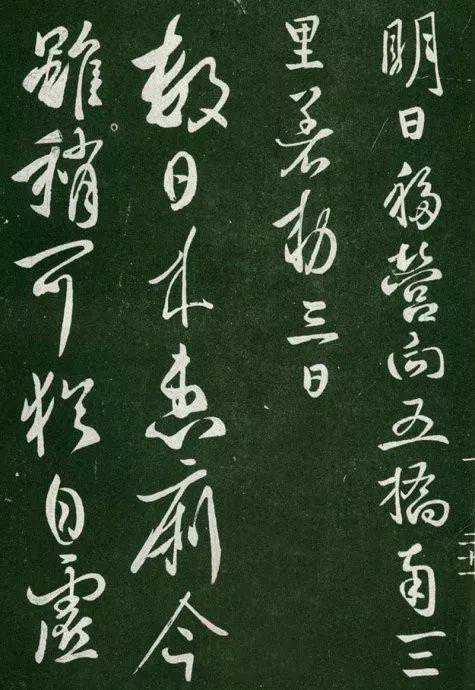 明日移營向五橋南三
里著勅三日
數日來患痢今
雖稍可猶自虛